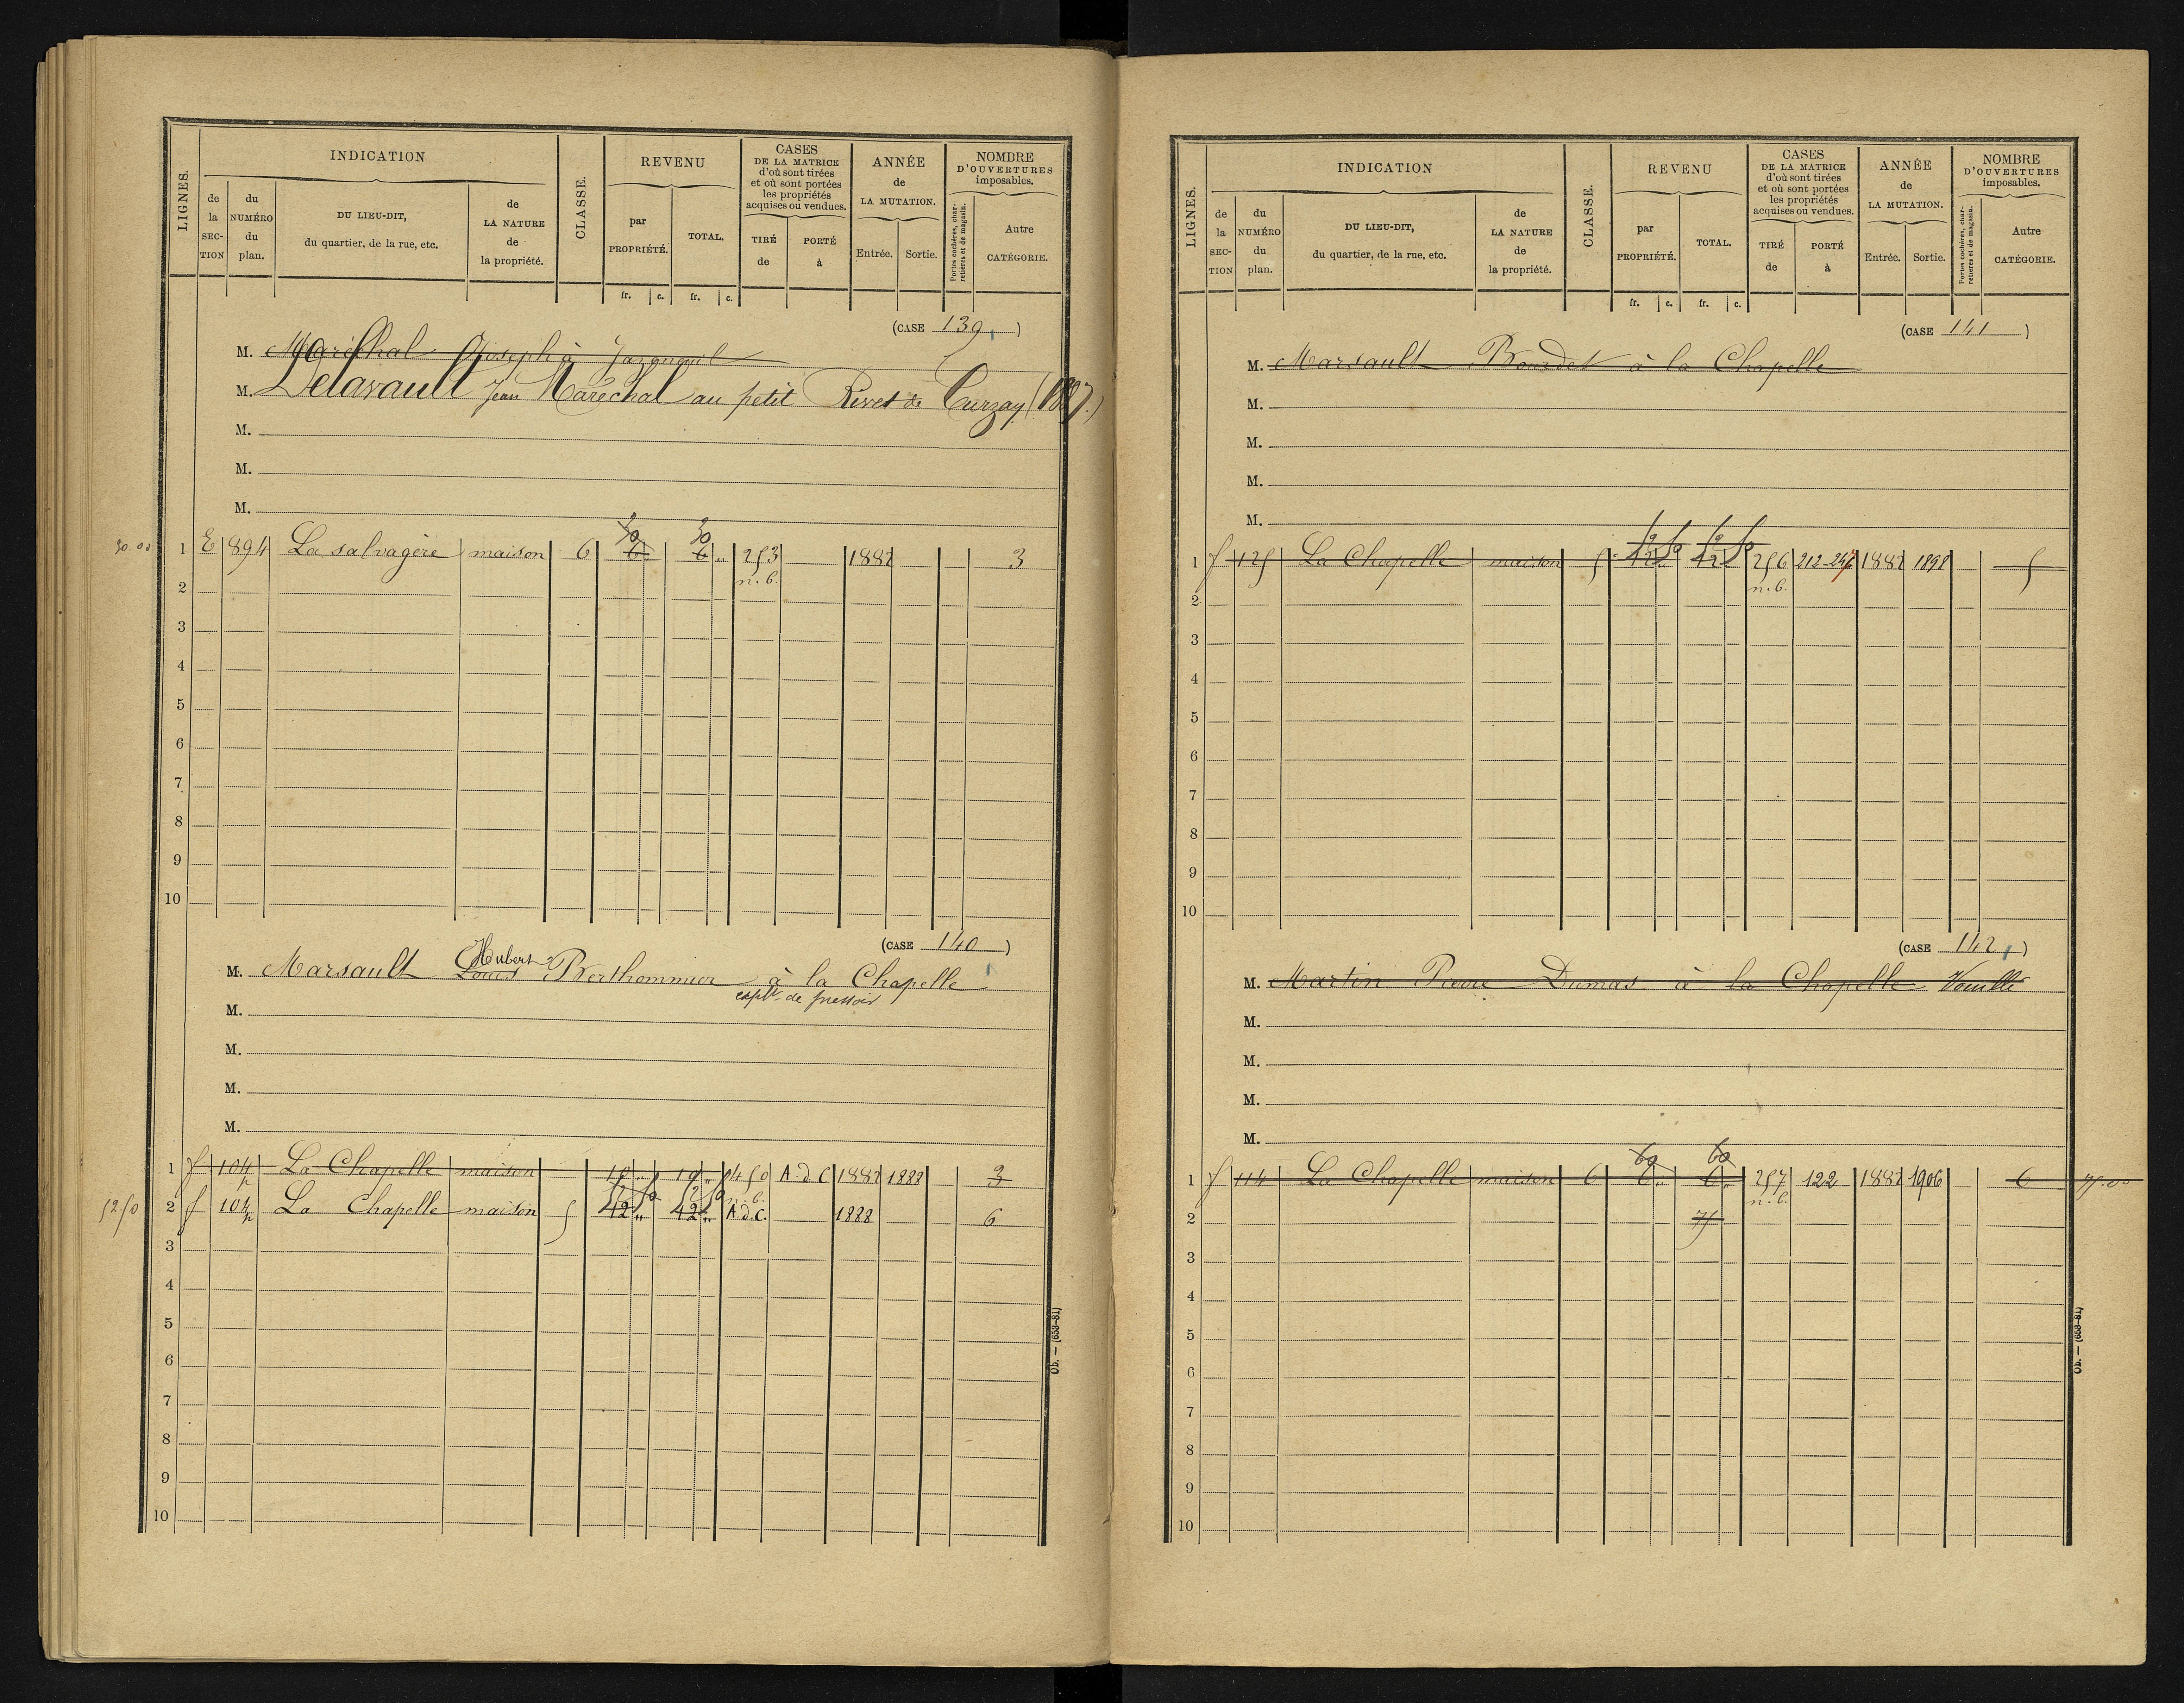 LIGNES.
INDICATION
de la SECTION
du NUMÉRO du plan.
DU LIEU-DIT, du quartier, de la rue, etc.
de LA NATURE de la propriété.
CLASSE.
REVENU
par PROPRIÉTÉ.
TOTAL.
fr. c. fr. c.
CASES DE LA MATRICE d'où sont tirées et où sont portées les propriétés acquises ou vendues.
TIRÉ de
PORTÉ à
ANNÉE de LA MUTATION.
Entrée. Sortie.
NOMBRE D'OUVERTURES imposables.
Portes cochères, charretières et de magasin.
Autre CATÉGORIE.
(CASE 139)
M. Maréchal Joseph à Jazeneuil
M. Delavault Jean Maréchal au petit de Curzay
M.
M.
M.
30
30
30.00 1 E 894 La salvagère maison 6 6 6 " 253 1882 3
n. b.
2
3
4
5
6
7
8
9
10
(CASE 140)
Hubert
M. Marsault Louis Berthommier à la Chapelle
de pressoir
M.
M.
M.
M.
1 f 104p La Chapelle maison A.d.C 1882 1888 3
52 50 52 50 n. b.
52 50 2 f 104p La Chapelle maison 5 42 " 42 " A.d.C. 1888 6
3
4
5
6
7
8
9
10
Ob. — (653-81)
LIGNES.
INDICATION
de la SECTION
du NUMÉRO du plan.
DU LIEU-DIT, du quartier, de la rue, etc.
de LA NATURE de la propriété.
CLASSE.
REVENU
par PROPRIÉTÉ.
TOTAL.
fr. c. fr. c.
CASES DE LA MATRICE d'où sont tirées et où sont portées les propriétés acquises ou vendues.
TIRÉ de
PORTÉ à
ANNÉE de LA MUTATION.
Entrée. Sortie.
NOMBRE D'OUVERTURES imposables.
Portes cochères, charretières et de magasin.
Autre CATÉGORIE.
(CASE 141)
M. Marsault Bourdet à la Chapelle
M.
M.
M.
M.
1 f 125 La Chapelle maison 5 42 42 256 212-247 1882 1898 5
n. b.
2
3
4
5
6
7
8
9
10
(CASE 142)
M. Martin Pierre Dumas à la Chapelle Vouillé
M.
M.
M.
M.
60 60
1 f 114 La Chapelle maison 6 6 " 6 " 257 122 1882 1906 6 75.00
n. b.
2 75
3
4
5
6
7
8
9
10
Ob. — (653-81)